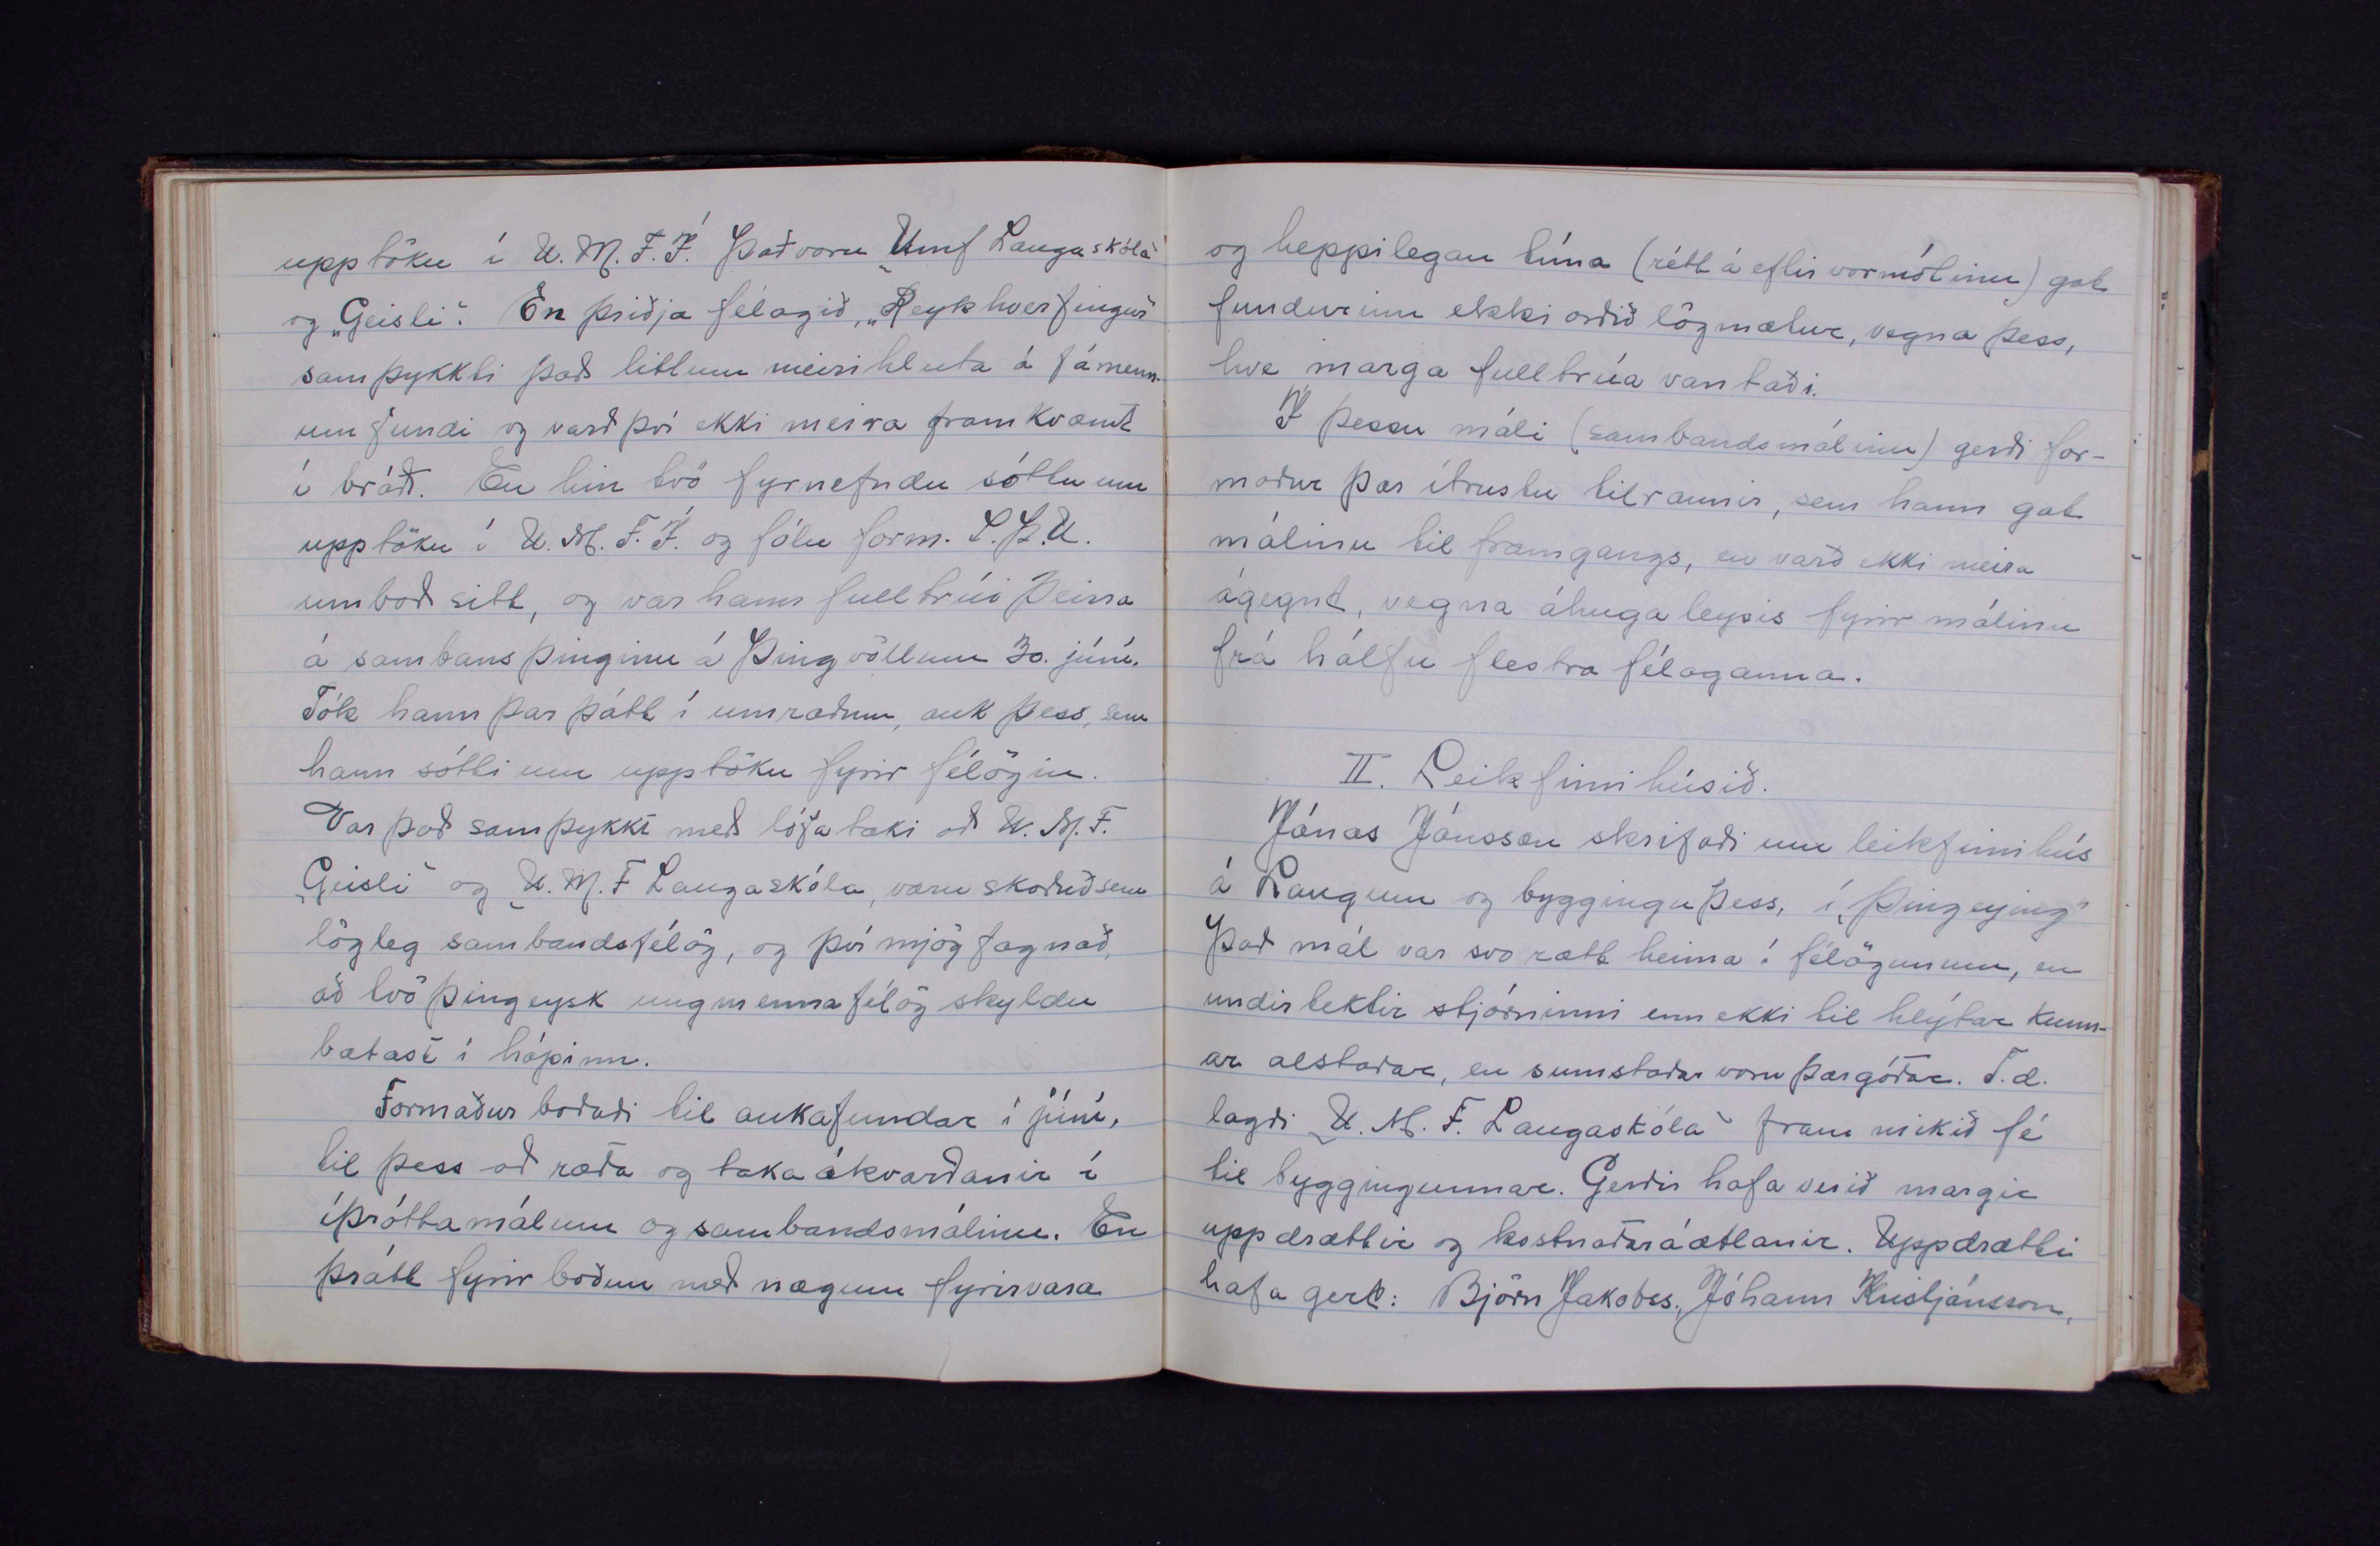 upptöku í U.M.F.Í. Það voru „Umf Laugaskóla“
og „Geisli“. En þriðja félagið, „Reykhverfingur“
samþykkti það litlum meirihluta á fámenn-
um fundi og varð því ekki meira framkvæmt
í bráð. En hin tvö fyrnefndu sóttu um
upptöku í U.M.F.Í. og fólu form. S.Þ.U.
umboð sitt, og var hann fulltrúi þeirra
á sambansþinginu á Þingvöllum 30. júní.
Tók hann þar þátt í umræðum, auk þess, sem
hann sótti um upptöku fyrir félögin.
Var það samþykkt með lófataki að U.M.F.
„Geisli“ og „U.M.F Laugaskóla, væru skoðuð sem
lögleg sambandsfélög, og því mjög fagnað,
að tvö þingeysk ungmennafélög skyldu
bætast í hópinn.
Formaður boðaði til aukafundar í júní,
til þess að ræða og taka ákvarðanir í
íþróttamálum og sambandsmálinu. En
þrátt fyrir boðun með nægum fyrirvara
og heppilegan tíma (rétt á eftir vormótinu) gat
fundurinn ekki orðið lögmætur, vegna þess,
hve marga fulltrúa vantaði.
Í þessu máli (sambandsmálinu) gerði for-
maður þær ítrustu tilraunir, sem hann gat
málinu til framgangs, en varð ekki meira
ágegnt, vegna áhugaleysis fyrir málinu
frá hálfu flestra félaganna.
II. Leikfimihúsið.
Jónas Jónsson skrifaði um leikfimihús
á Laugum og byggingu þess, í „Þingeying“
Það mál var svo rætt heima í félögunum, en
undirtektir stjórninni enn ekki til hlýtar kunn-
ar alstaðar, en sumstaðar voru þær góðar. T.d.
lagði „U.M.F. Laugaskóla“ fram mikið fé
til byggingunnar. Gerðir hafa verið margir
uppdrættir og kostnaðaráætlanir. Uppdrætti
hafa gert: Björn Jakobss., Jóhann Kristjánsson,